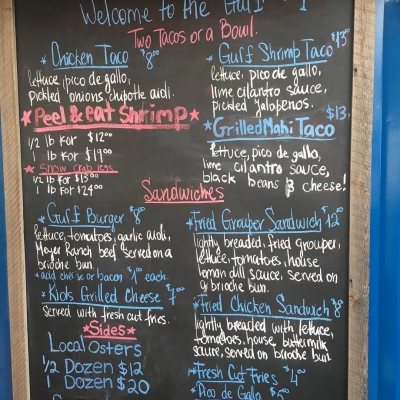 Welcome to the Gulf
Two Tacos or a Bowl.
* Chicken Taco $8⁰⁰
lettuce, pico de gallo,
pickled onions, chipotle aioli.
* Peel & Eat Shrimp *
1/2 lb for $12⁰⁰
1 lb for $19⁰⁰
* Snow crab legs
1/2 lb for $13⁰⁰
1 lb for $24⁰⁰
* Gulf Shrimp Taco $13
lettuce, pico de gallo,
lime cilantro sauce,
pickled jalapenos.
$13
* Grilled Mahi Taco
lettuce, pico de gallo,
lime cilantro sauce,
black beans & cheese!
Sandwiches
* Gulf Burger $8
lettuce, tomatoes, garlic aioli,
Meyer Ranch beef served on a
brioche bun.
* add cheese or bacon $1⁰⁰ each.
* Kids Grilled Cheese $7
served with fresh cut fries.
* Sides *
Local Osters
1/2 Dozen $12
1 Dozen $20
* Fried Grouper Sandwich $12⁰⁰
lightly breaded, fried grouper,
lettuce, tomatoes, house
lemon dill sauce, served on
a brioche bun.
* Fried Chicken Sandwich $8
lightly breaded with lettuce,
tomatoes, house buttermilk
sauce, served on brioche bun
* Fresh Cut Fries $4⁰⁰
* Pico de Gallo